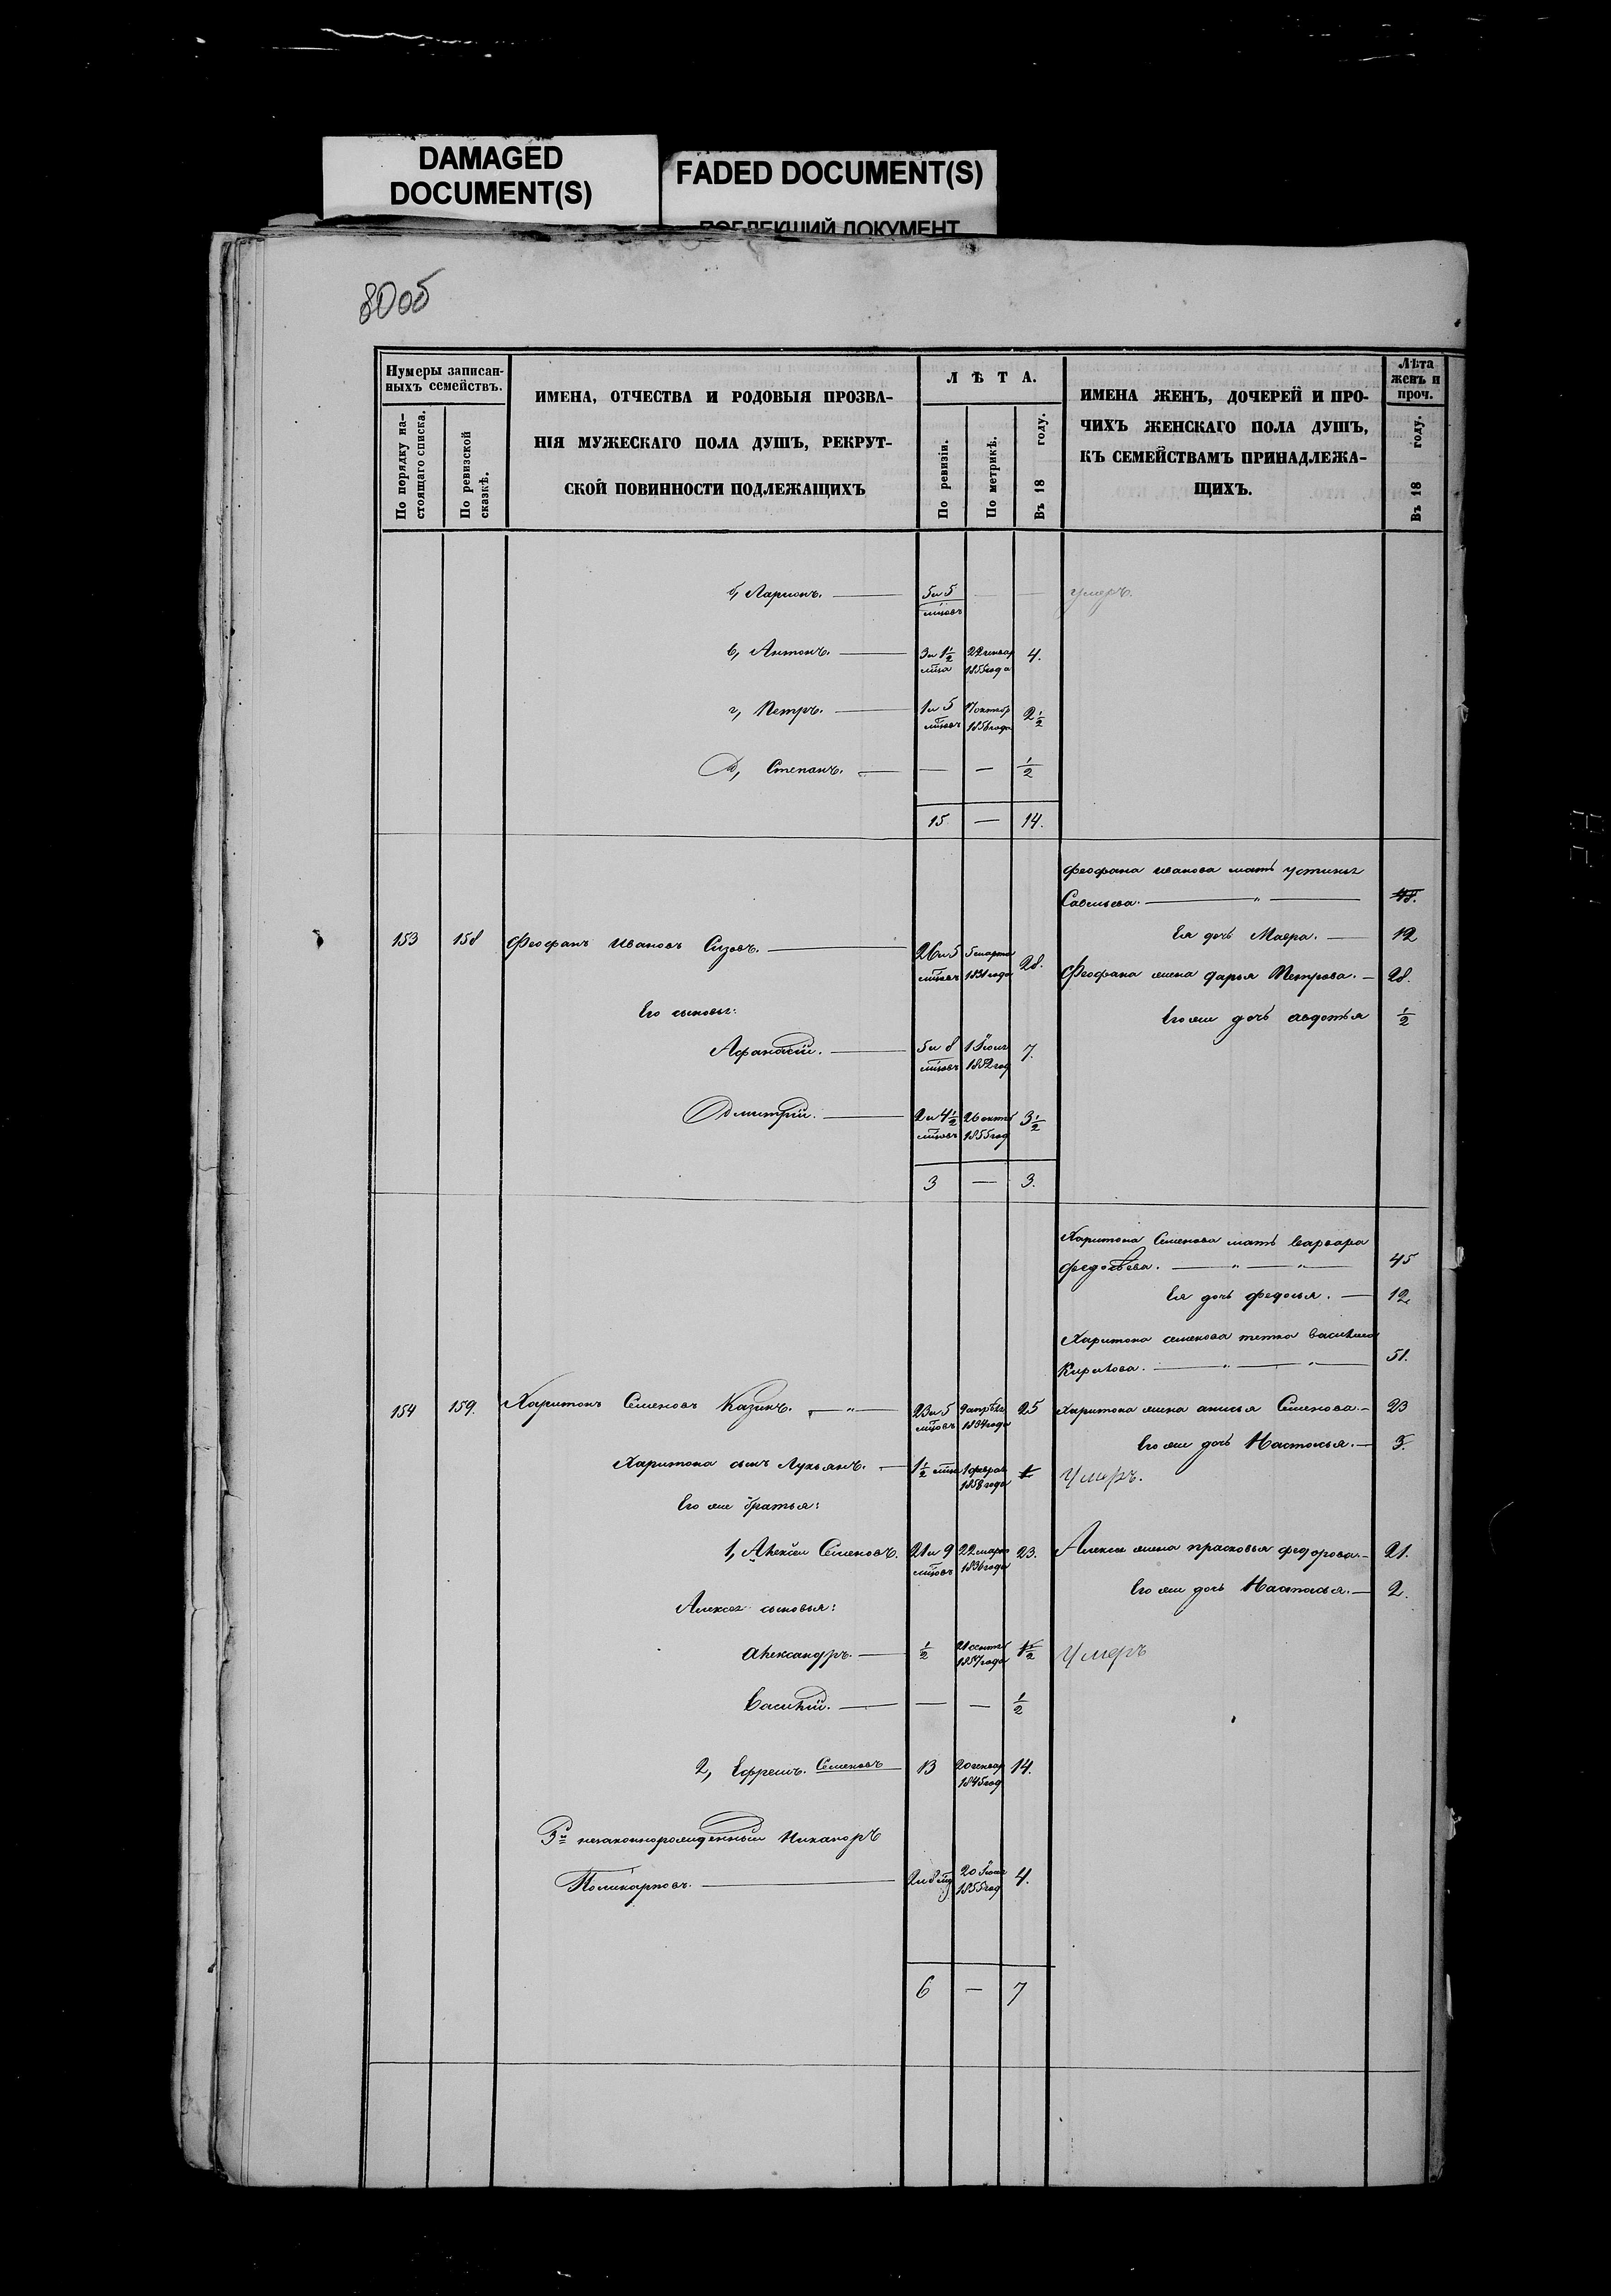 DAMAGED
DOCUMENT(S)
FADED DOCUMENT(S)
ПОБЛЕКШИЙ ДОКУМЕНТ
80об
Нумеры записан-
ныхъ семействъ.
По порядку на-
стоящаго списка.
По ревизской
сказкѣ.
ИМЕНА, ОТЧЕСТВА И РОДОВЫЯ ПРОЗВА-
НІЯ МУЖЕСКАГО ПОЛА ДУШЪ, РЕКРУТ-
СКОЙ ПОВИННОСТИ ПОДЛЕЖАЩИХЪ
ЛѢТА.
По ревизіи.
По метрикѣ.
Въ 18 году.
ИМЕНА ЖЕНЪ, ДОЧЕРЕЙ И ПРО-
ЧИХЪ ЖЕНСКАГО ПОЛА ДУШЪ,
КЪ СЕМЕЙСТВАМЪ ПРИНАДЛЕЖА-
ЩИХЪ.
Лѣта
женъ и
проч.
Въ 18 году.
б, Ларионъ. — 5 и 5 — — умеръ.
мцовъ
в, Антонъ. — 3 и 1½ 22 генвар 4.
мца 1855 года
г, Петръ. — 1 и 5 17 октбр 2½
мцовъ 1856 года
д, Степанъ. — — — ½
15 — 14.
Феофана иванова мать устинья
Савельева. — " — 48.
Ея дочь Мавра. — 12
153 158 Феофанъ Ивановъ Сизовъ. — 26 и 5 5 марта 28.
мцовъ 1831 года
Феофана жена дарья Петрова. — 28.
Его сыновья:
Его же дочь авдотья ½
Афанасій. — 5 и 8 1 Іюля 7.
мцовъ 1852 год
Дмитрій. — 2 и 4½ 26 октб 3½
мцовъ 1855 год
3 — 3.
Харитона Семенова мать варвара
федосѣева. — " — " — 45
Ея дочь федосья. — 12
Харитона семенова тетка василиса
Кирилова. — " — " — 51.
154 159. Харитонъ Семеновъ Казинъ. — " — 23 и 5 9 апрѣля 25 Харитона жена анисья Семенова. — 23
мцовъ 1834 года
Его же дочь Настасья. — 3.
Харитона сынъ Лукьянъ. — 1½ мца 1 феврал 1 Умеръ.
1858 года
Его же братья:
1, Алексѣй Семеновъ. 21 и 9 22 марта 23. Алексея жена прасковья федорова. — 21.
мцовъ 1836 года
Его же дочь Настасья. — 2.
Алексея сыновья:
александръ. — ½ 21 сентб 1½ Умеръ
1857 года
Василій. — — — ½
2, Ефремъ. Семеновъ 13 20 генвар 14.
1845 год
3й незаконнорожденный Никаноръ
Поликарповъ. — 2 и 8 мц 20 Іюня 4.
1855 год
6 — 7